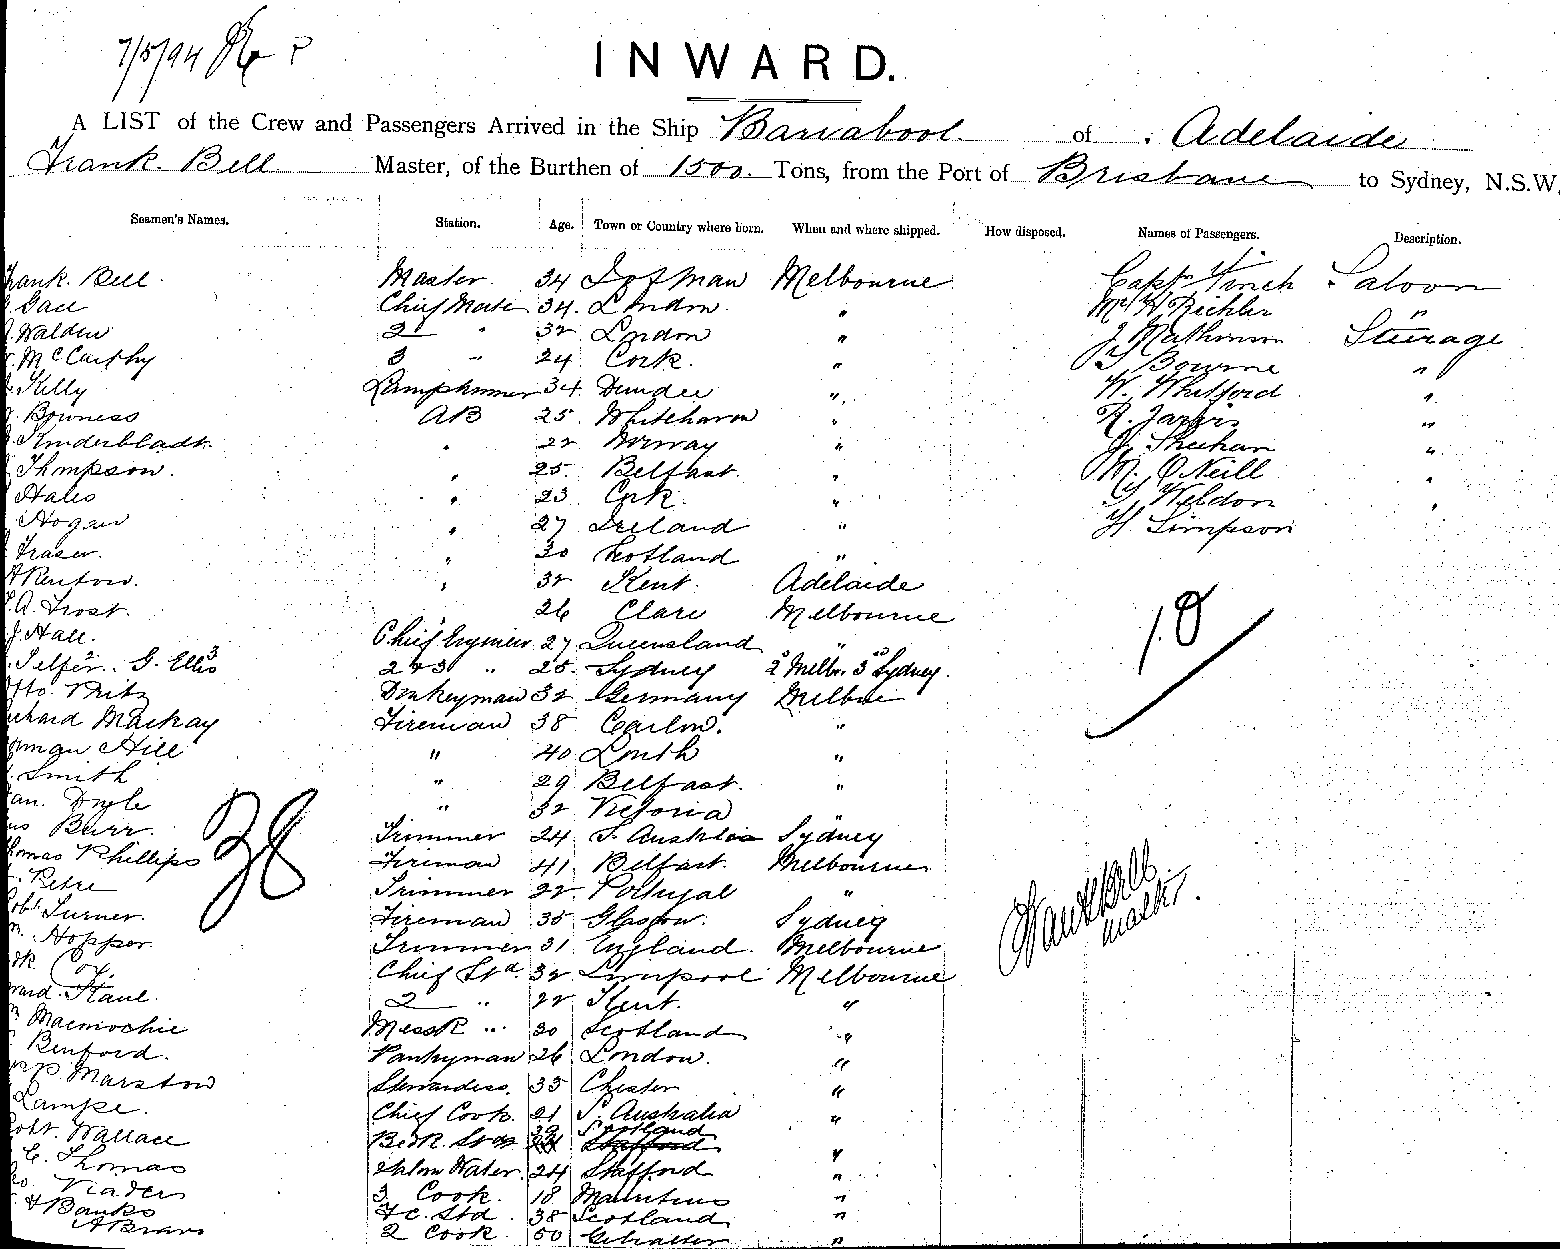 7/5/94
INWARD.
A LIST of the Crew and Passengers Arrived in the Ship Barrabool of Adelaide
Frank Bell Master, of the Burthen of 1500 Tons, from the Port of Brisbane to Sydney, N.S.W.
Seamen's Names. Station. Age. Town or Country where born. When and where shipped. How disposed. Names of Passengers. Description.
Frank Bell Master 34 I of Man Melbourne Captn Finch Saloon
Chief Mate 34 London " Mr "
Walden 2 " 32 London " J Steerage
McCarthy 3 " 24 Cork " Bourne "
Kelly Lamptrimmer 34 Dundee " W. Whitford "
Bowness AB 25 Whitehaven " R. Jarvis "
" 22 Norway " J Sheehan "
Thompson " 25 Belfast " M. O'Neill "
Hales " 23 Cork " Weldon "
Hogan " 27 Ireland " H. Simpson
Fraser " 30 Scotland "
Renton " 32 Kent Adelaide
A. Frost 26 Clare Melbourne
J. Hall Chief Engineer 27 Queensland "
Telfer 2 G. Ellis 3 2 & 3 " 25 Sydney 2d Melbn 3rd Sydney
Otto Donkeyman 32 Germany Melbne
Richard Mackay Fireman 38 Carlow "
Norman Hill " 40 Louth "
Smith " 29 Belfast "
Doyle " 32 Victoria "
Burr Trimmer 24 S. Australia Sydney
Thomas Phillips Fireman 41 Belfast Melbourne
Petre Trimmer 22 Portugal "
Robt Turner Fireman 35 Glasgow Sydney
Hopper Trimmer 31 England Melbourne
Chief Std 32 Liverpool Melbourne
2 " 22 Kent "
Maconochie Messr " 30 Scotland "
Benford Pantryman 26 London "
Marston Stewardess 33 Chester "
Lampe Chief Cook 21 S. Australia "
Robt. Wallace Bedr. Std 39 Scotland "
C. Thomas Saloon Waiter 24 Stafford "
3 Cook 18 Mauritius "
Banks F c. Std 38 Scotland "
2 Cook 50 Gibraltar "
38
10
Frank Bell
master